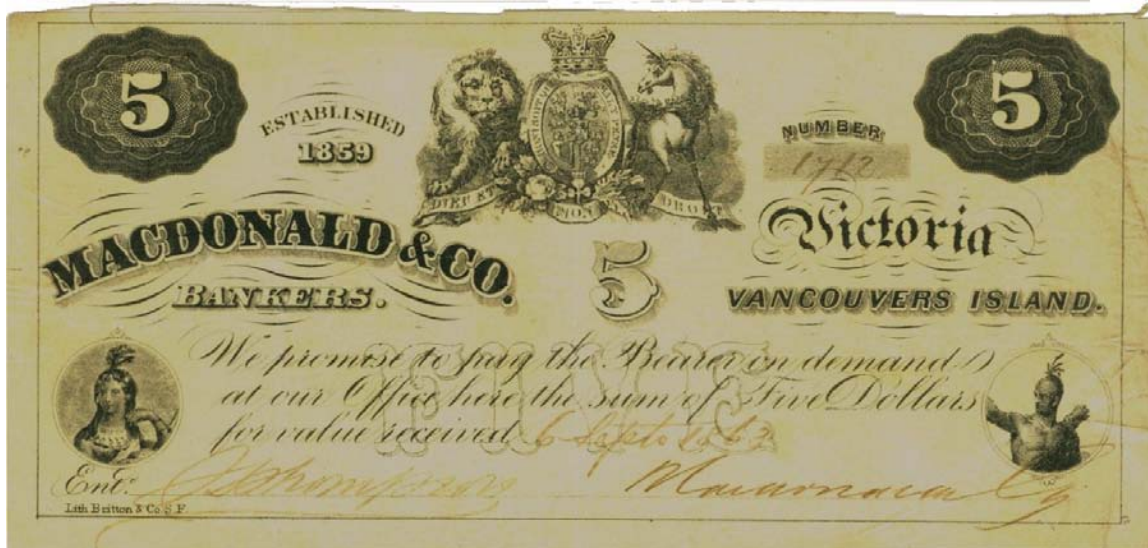 5
5
ESTABLISHED
1859
NUMBER
1712
DIEU ET
MON
DROIT
MACDONALD & CO.
BANKERS.
5
Victoria
VANCOUVERS ISLAND.
FIVE
We promise to pay the Bearer on demand
at our Office here the sum of Five Dollars
for value received 6 Sept 1863
Ent.
Macdonald Co
Lith Britton & Co S.F.